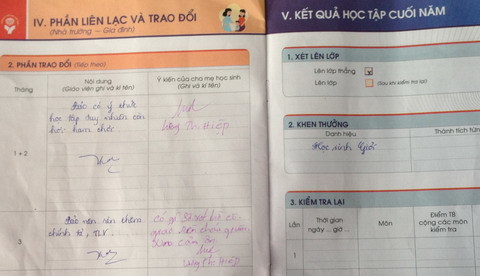 IV. PHẦN LIÊN LẠC VÀ TRAO ĐỔI
(Nhà trường – Gia đình)
2. PHẦN TRAO ĐỔI (Tiếp theo)
Tháng
Nội dung
(Giáo viên ghi và kí tên)
Ý kiến của cha mẹ học sinh
(Ghi và kí tên)
1 + 2
Bảo có ý thức
học tập tuy nhiên còn
hơi ham chơi.
3
Bảo nên rèn thêm
chính tả, TLV.
V. KẾT QUẢ HỌC TẬP CUỐI NĂM
1. XÉT LÊN LỚP
Lên lớp thẳng
Lên lớp
(Sau khi kiểm tra lại)
2. KHEN THƯỞNG
Danh hiệu
Thành tích
Học sinh Giỏi
3. KIỂM TRA LẠI
Lần
Thời gian
ngày ... giờ ...
Môn
Điểm TB
cộng các môn
kiểm tra
1